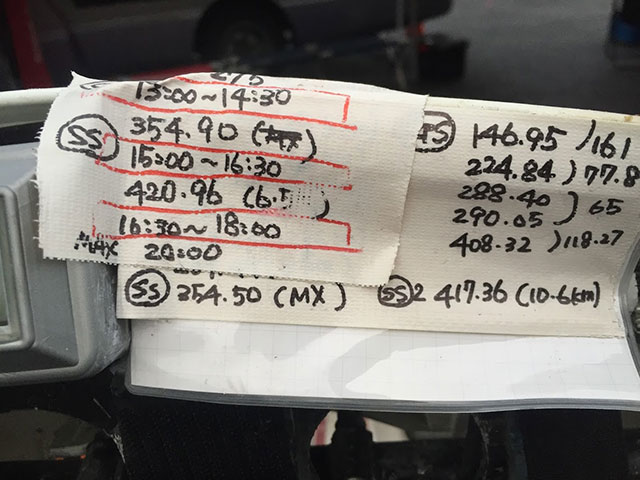 275
13:00~14:30
SS 354.90
15:00~16:30
420.96 (6.
16:30~18:00
MAX 20:00
SS 354.50 (MX)
146.95 )161
224.84 )77.8
288.40
290.05 ) 65
408.32 )118.27
SS2 417.36 (10.6km)